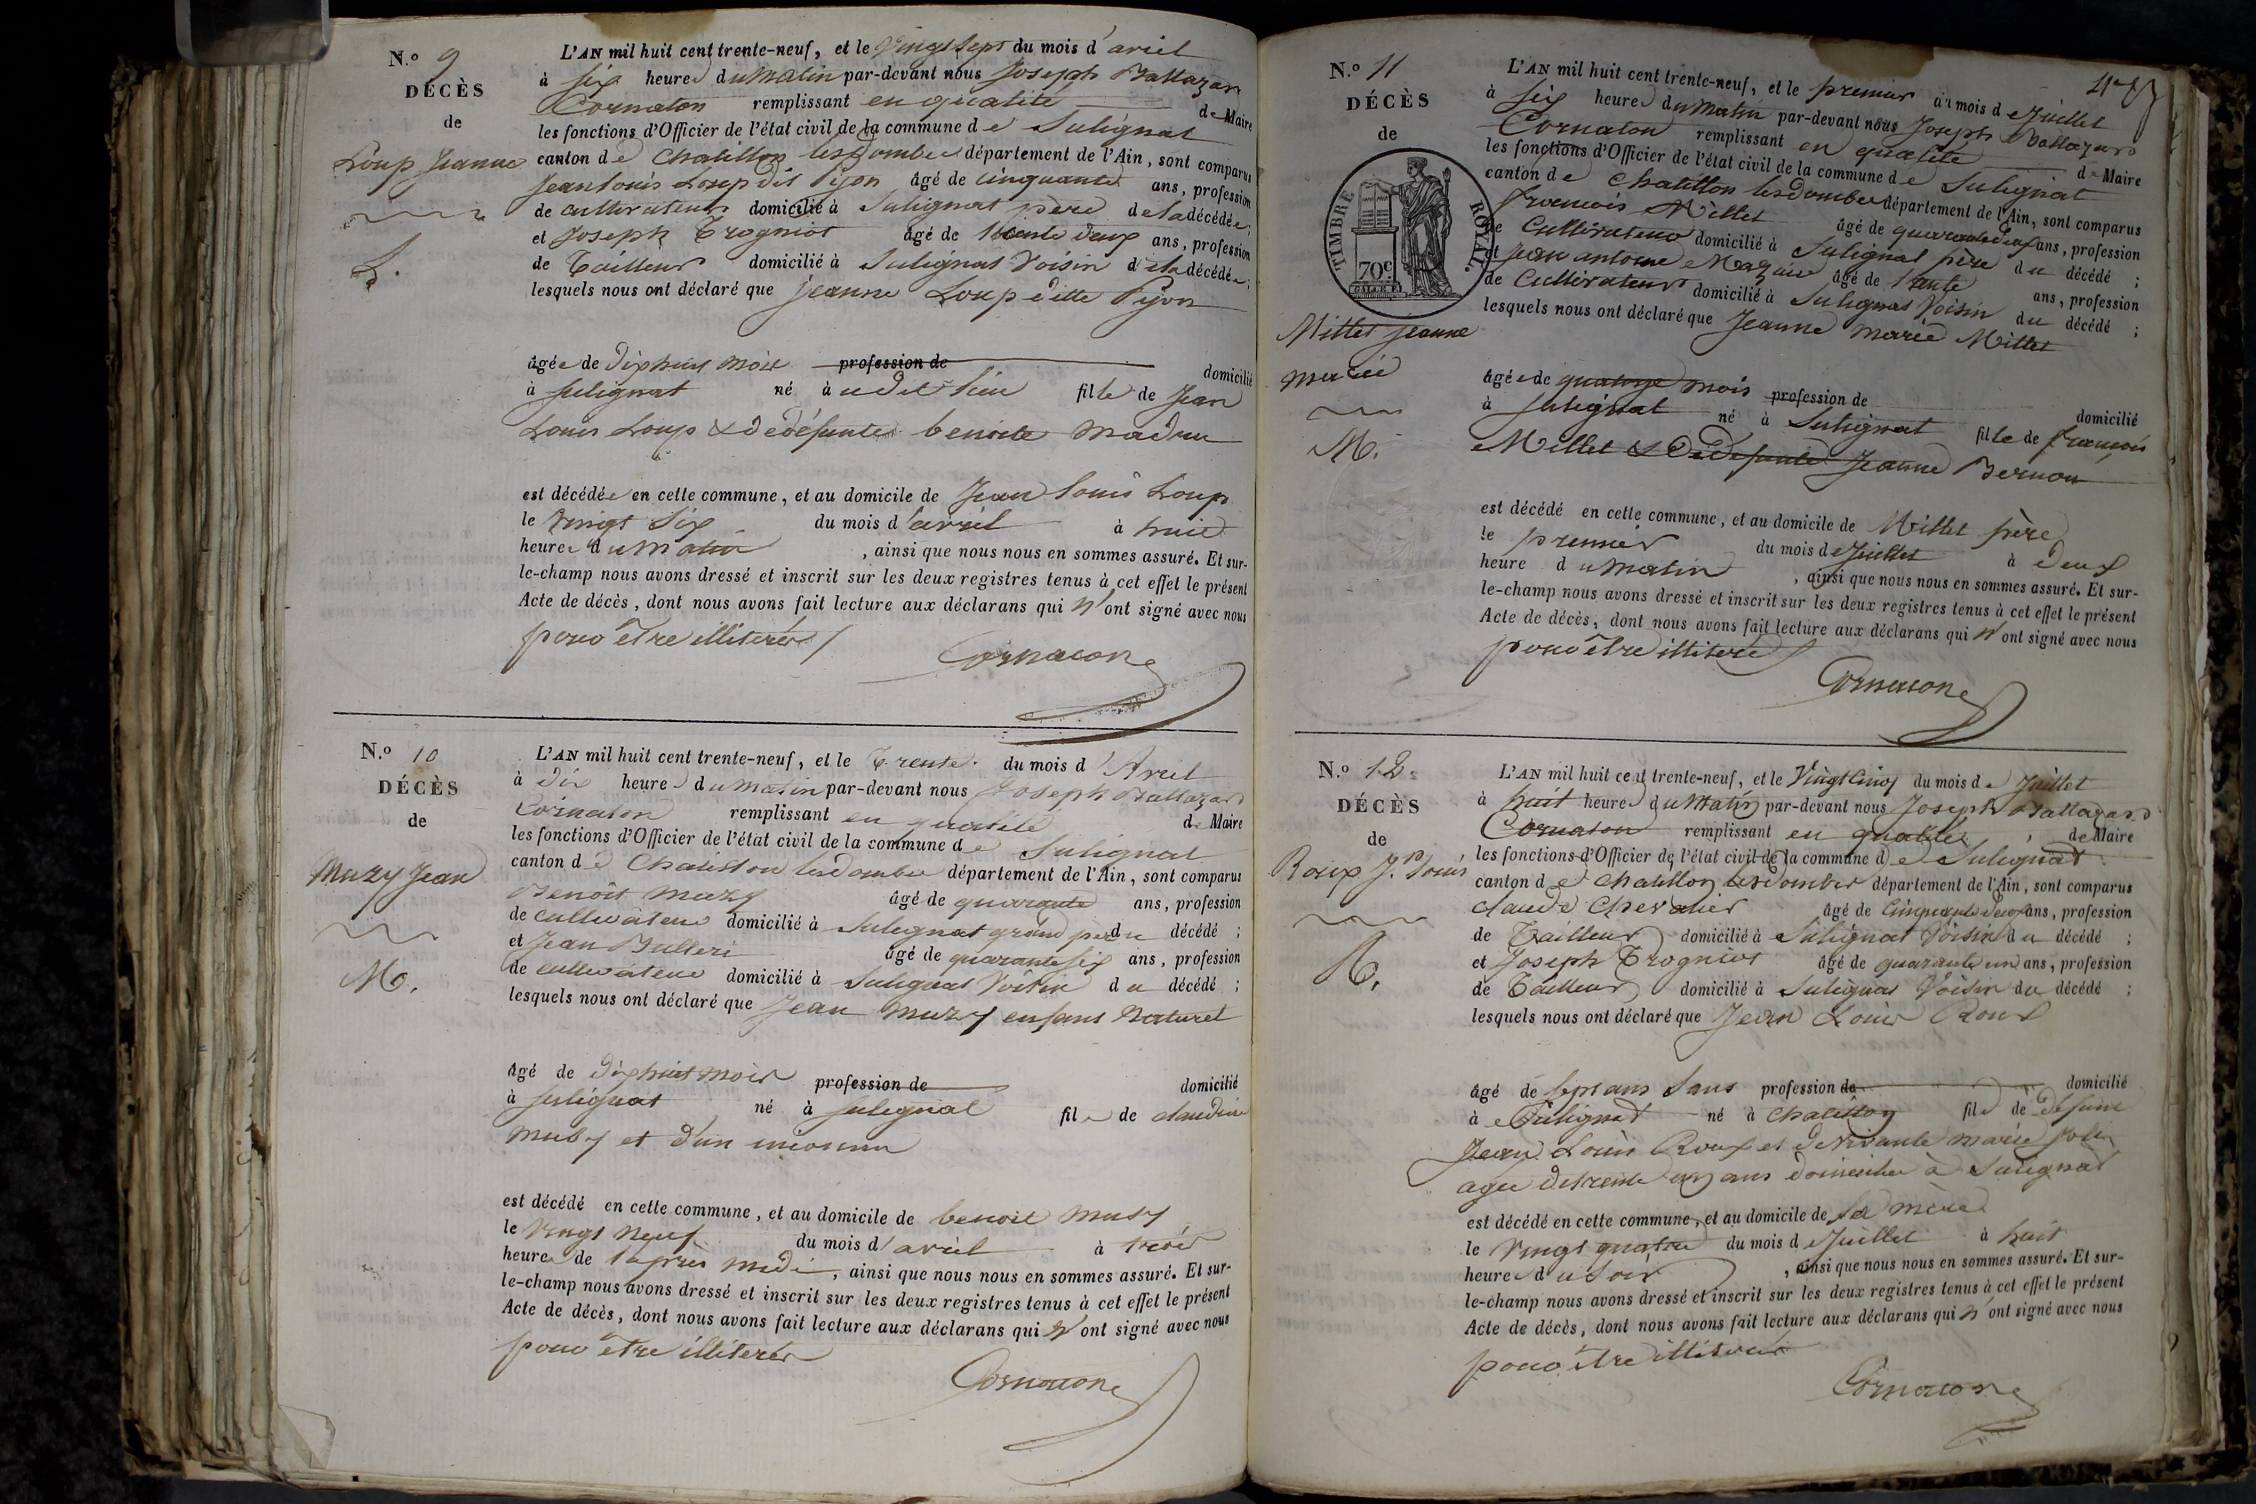 N.o 9
DÉCÈS
de
Loup Jeanne
L.
L'AN mil huit cent trente-neuf, et le Vingt sept du mois d'avril
à six heures du Matin par-devant nous Joseph Baltazar
Cornaton remplissant en qualité de Maire
les fonctions d'Officier de l'état civil de la commune de Sulignat
canton de Chatillon les dombes département de l'Ain, sont comparus
Jean Louis Loup dit Pijon âgé de cinquante ans, profession
de cultivateur domicilié à Sulignat père de la décédée;
et Joseph Trogniot âgé de trente deux ans, profession
de Tailleur domicilié à Sulignat Voisin de la décédée;
lesquels nous ont déclaré que Jeanne Loup ditte Pijon
âgée de dixhuit mois profession de domicilié
à Sulignat né à udit lieu fille de Jean
Louis Loup & de défunte benoite
est décédée en cette commune, et au domicile de Jean Louis Loup
le Vingt Six du mois d'avril à huit
heures du Matin, ainsi que nous nous en sommes assuré. Et sur-
le-champ nous avons dressé et inscrit sur les deux registres tenus à cet effet le présent
Acte de décès, dont nous avons fait lecture aux déclarans qui n'ont signé avec nous
pour être illiterés
Cornaton
N.o 10
DÉCÈS
de
Muzy Jean
M.
L'AN mil huit cent trente-neuf, et le Trente du mois d'Avril
à dix heures du matin par-devant nous Joseph Baltazar
Cornaton remplissant en qualité de Maire
les fonctions d'Officier de l'état civil de la commune de Sulignat
canton de Chatillon les dombes département de l'Ain, sont comparus
Benoit Muzy âgé de quarante ans, profession
de cultivateur domicilié à Sulignat grand père du décédé;
et Jean Bulleri âgé de quarante six ans, profession
de cultivateur domicilié à Sulignat Voisin du décédé;
lesquels nous ont déclaré que Jean Muzy enfant Naturel
âgé de dixhuit mois profession de domicilié
à Sulignat né à Sulignat fils de claudine
Muzy et d'un inconnu
est décédé en cette commune, et au domicile de benoit Muzy
le Vingt Neuf du mois d'avril à trois
heures de l'après midi, ainsi que nous nous en sommes assuré. Et sur-
le-champ nous avons dressé et inscrit sur les deux registres tenus à cet effet le présent
Acte de décès, dont nous avons fait lecture aux déclarans qui n'ont signé avec nous
pour être illiterés
Cornaton
N.o 11
DÉCÈS
de
TIMBRE ROYAL.
70c
Millet Jeanne
marie
M.
L'AN mil huit cent trente-neuf, et le premier du mois de Juillet
à six heures du Matin par-devant nous Joseph Baltazard
Cornaton remplissant en qualité de Maire
les fonctions d'Officier de l'état civil de la commune de Sulignat
canton de Chatillon les dombes département de l'Ain, sont comparus
francois Millet âgé de quarante deux ans, profession
de Cultivateur domicilié à Sulignat père du décédé;
et Jean antoine âgé de trente ans, profession
de Cultivateur domicilié à Sulignat Voisin du décédé;
lesquels nous ont déclaré que Jeanne Marie Millet
âgée de quatorze mois profession de domicilié
à Sulignat né à Sulignat fille de françois
Millet & De défunte Jeanne Bernon
est décédé en cette commune, et au domicile de Millet père
le premier du mois de Juillet à deux
heure du Matin, ainsi que nous nous en sommes assuré. Et sur-
le-champ nous avons dressé et inscrit sur les deux registres tenus à cet effet le présent
Acte de décès, dont nous avons fait lecture aux déclarans qui n'ont signé avec nous
pour être illiteré
Cornaton
N.o 12
DÉCÈS
de
Roux Jn Louis
R.
L'AN mil huit cent trente-neuf, et le Vingt Cinq du mois de Juillet
à huit heures du Matin par-devant nous Joseph Baltazard
Cornaton remplissant en qualité de Maire
les fonctions d'Officier de l'état civil de la commune de Sulignat
canton de Chatillon les dombes département de l'Ain, sont comparus
claude Chevalier âgé de Cinquante deux ans, profession
de Tailleur domicilié à Sulignat Voisin du décédé;
et Joseph Trogniot âgé de quarante un ans, profession
de Tailleur domicilié à Sulignat Voisin du décédé;
lesquels nous ont déclaré que Jean Louis Roux
âgé de sept ans Sans profession de domicilié
à Sulignat né à Chatillon fils de défunt
Jean Louis Roux et de Vivante marie Joli
agée de trente ans domiciliée à Sulignat
est décédé en cette commune, et au domicile de Sa mère
le Vingt quatre du mois de Juillet à huit
heures du Soir, ainsi que nous nous en sommes assuré. Et sur-
le-champ nous avons dressé et inscrit sur les deux registres tenus à cet effet le présent
Acte de décès, dont nous avons fait lecture aux déclarans qui n'ont signé avec nous
pour être illiterés
Cornaton